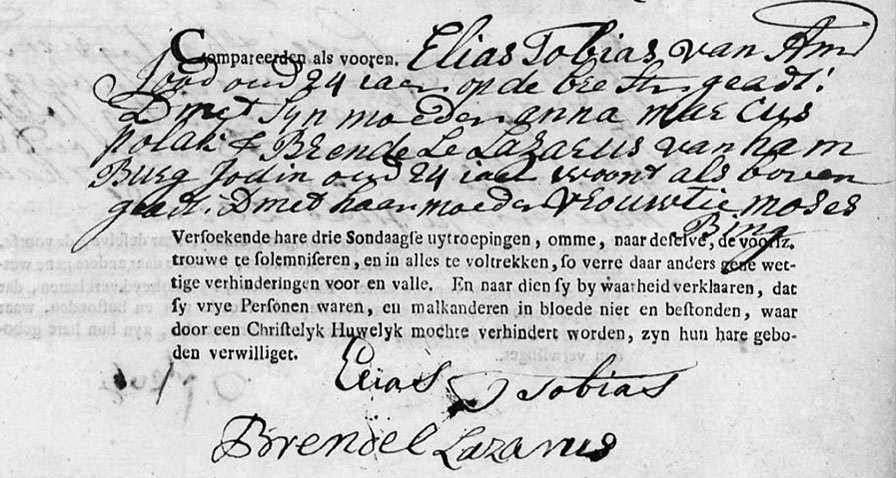 Compareerden als vooren. Elias Tobias van Am
Jood oud 24 iaar op de bree str geadt:
D met syn moeder anna marcus
polak & Brendele Lazarus van ham
Burg Jodin oud 24 iaar woont als boven
geadt. D met haar moeder vrouwtie moses
Bing
Versoekende hare drie Sondaagse uytroepingen, omme, naar deselve, de voorsz.
trouwe te solemniseren, en in alles te voltrekken, so verre daar anders gene wet-
tige verhinderingen voor en valle. En naar dien sy by waarheid verklaaren, dat
sy vrye Personen waren, en malkanderen in bloede niet en bestonden, waar
door een Christelyk Huwelyk mochte verhindert worden, zyn hun hare gebo-
den verwilliget.
Elias Tobias
Brendel Lazarus